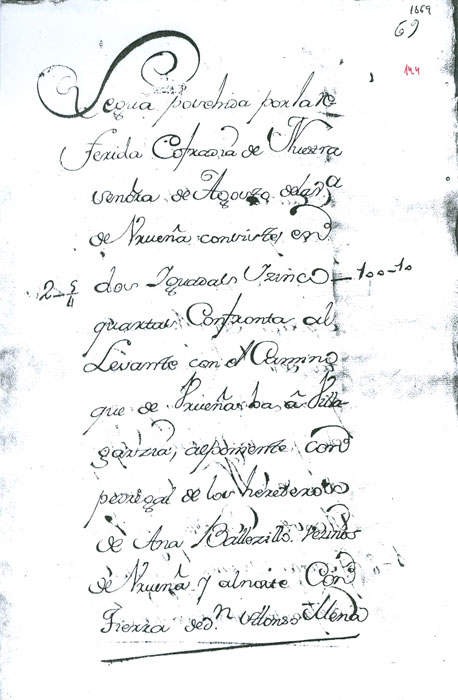 1669
69
194
Vegua posehida por la re
ferida Cofradia de Nuestra
Senora de Agosto de la v.a
de Vrueña consiste en
2-5/4 dos Iguadas Y Zinco 100-10
quartas Confronta al
Levante con el Camino
que de Vrueña ba â Villa
garzia, al poniente con
pedregal de los herederos
de Ana Ballezillo Vezinos
de Vrueña y al norte Con
Tierra de d.n Alonso Mena